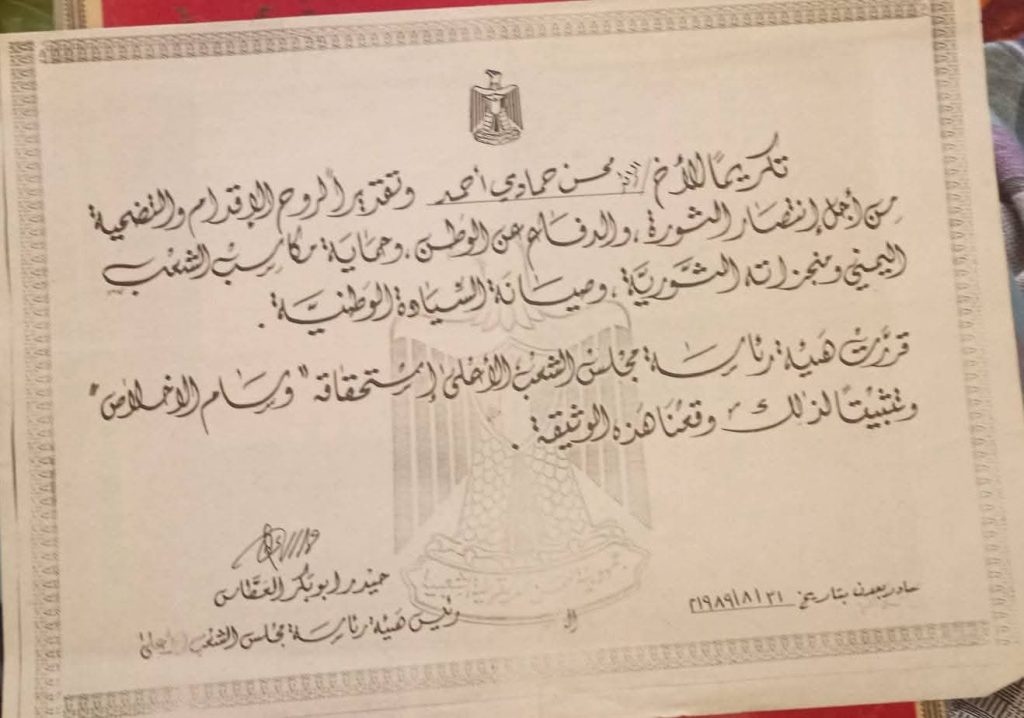 تكريمًا للأخ/ محسن حماوي أحمد وتقديرًا لروح الإقدام والتضحية
من أجل إنتصار الثورة، والدفاع عن الوطن، وحماية مكاسب الشعب
اليمني ومنجزاته الثَّوريَّة، وصيانة السِّيادة الوَطنيَّة.
قرَّرت هَيئة رئاسة مجلس الشعب الأعلى إستحقاقه "وسام الاخلاص"
وتثبيتًا لذلك وقعنا هذه الوثيقة.
حيدر ابوبكر العطَّاس
رئيس هيئة رئاسة مجلس الشعب الأعلى
صادر بعدن بتاريخ ٣١/٨/١٩٨٩م